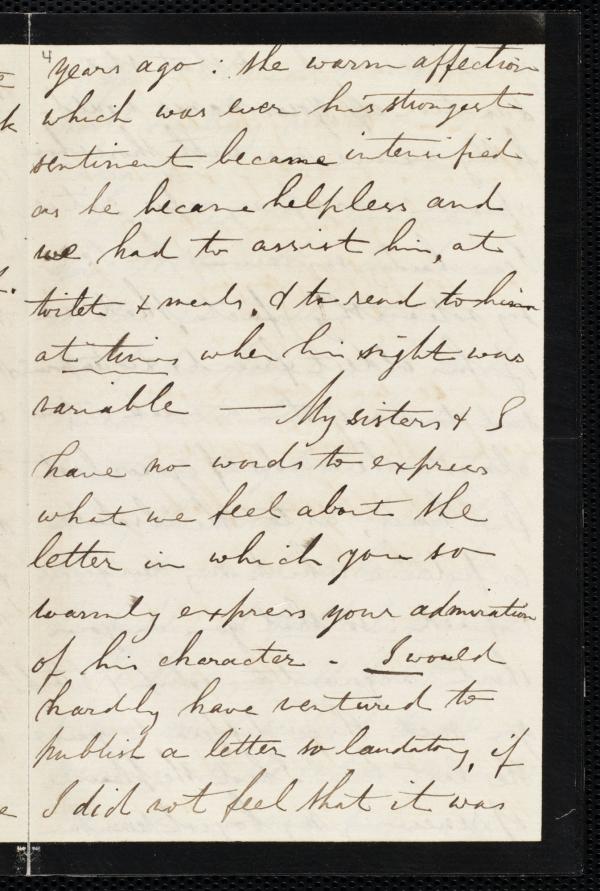 4
years ago : the warm affection
which was ever his strongest
sentiment became intensified
as he became helpless and
we had to assist him, at
toilet & meals, & to read to him
at times when his sight was
variable — My sisters & I
have no words to express
what we feel about the
letter in which you so
warmly express your admiration
of his character - I would
hardly have ventured to
publish a letter so laudatory, if
I did not feel that it was